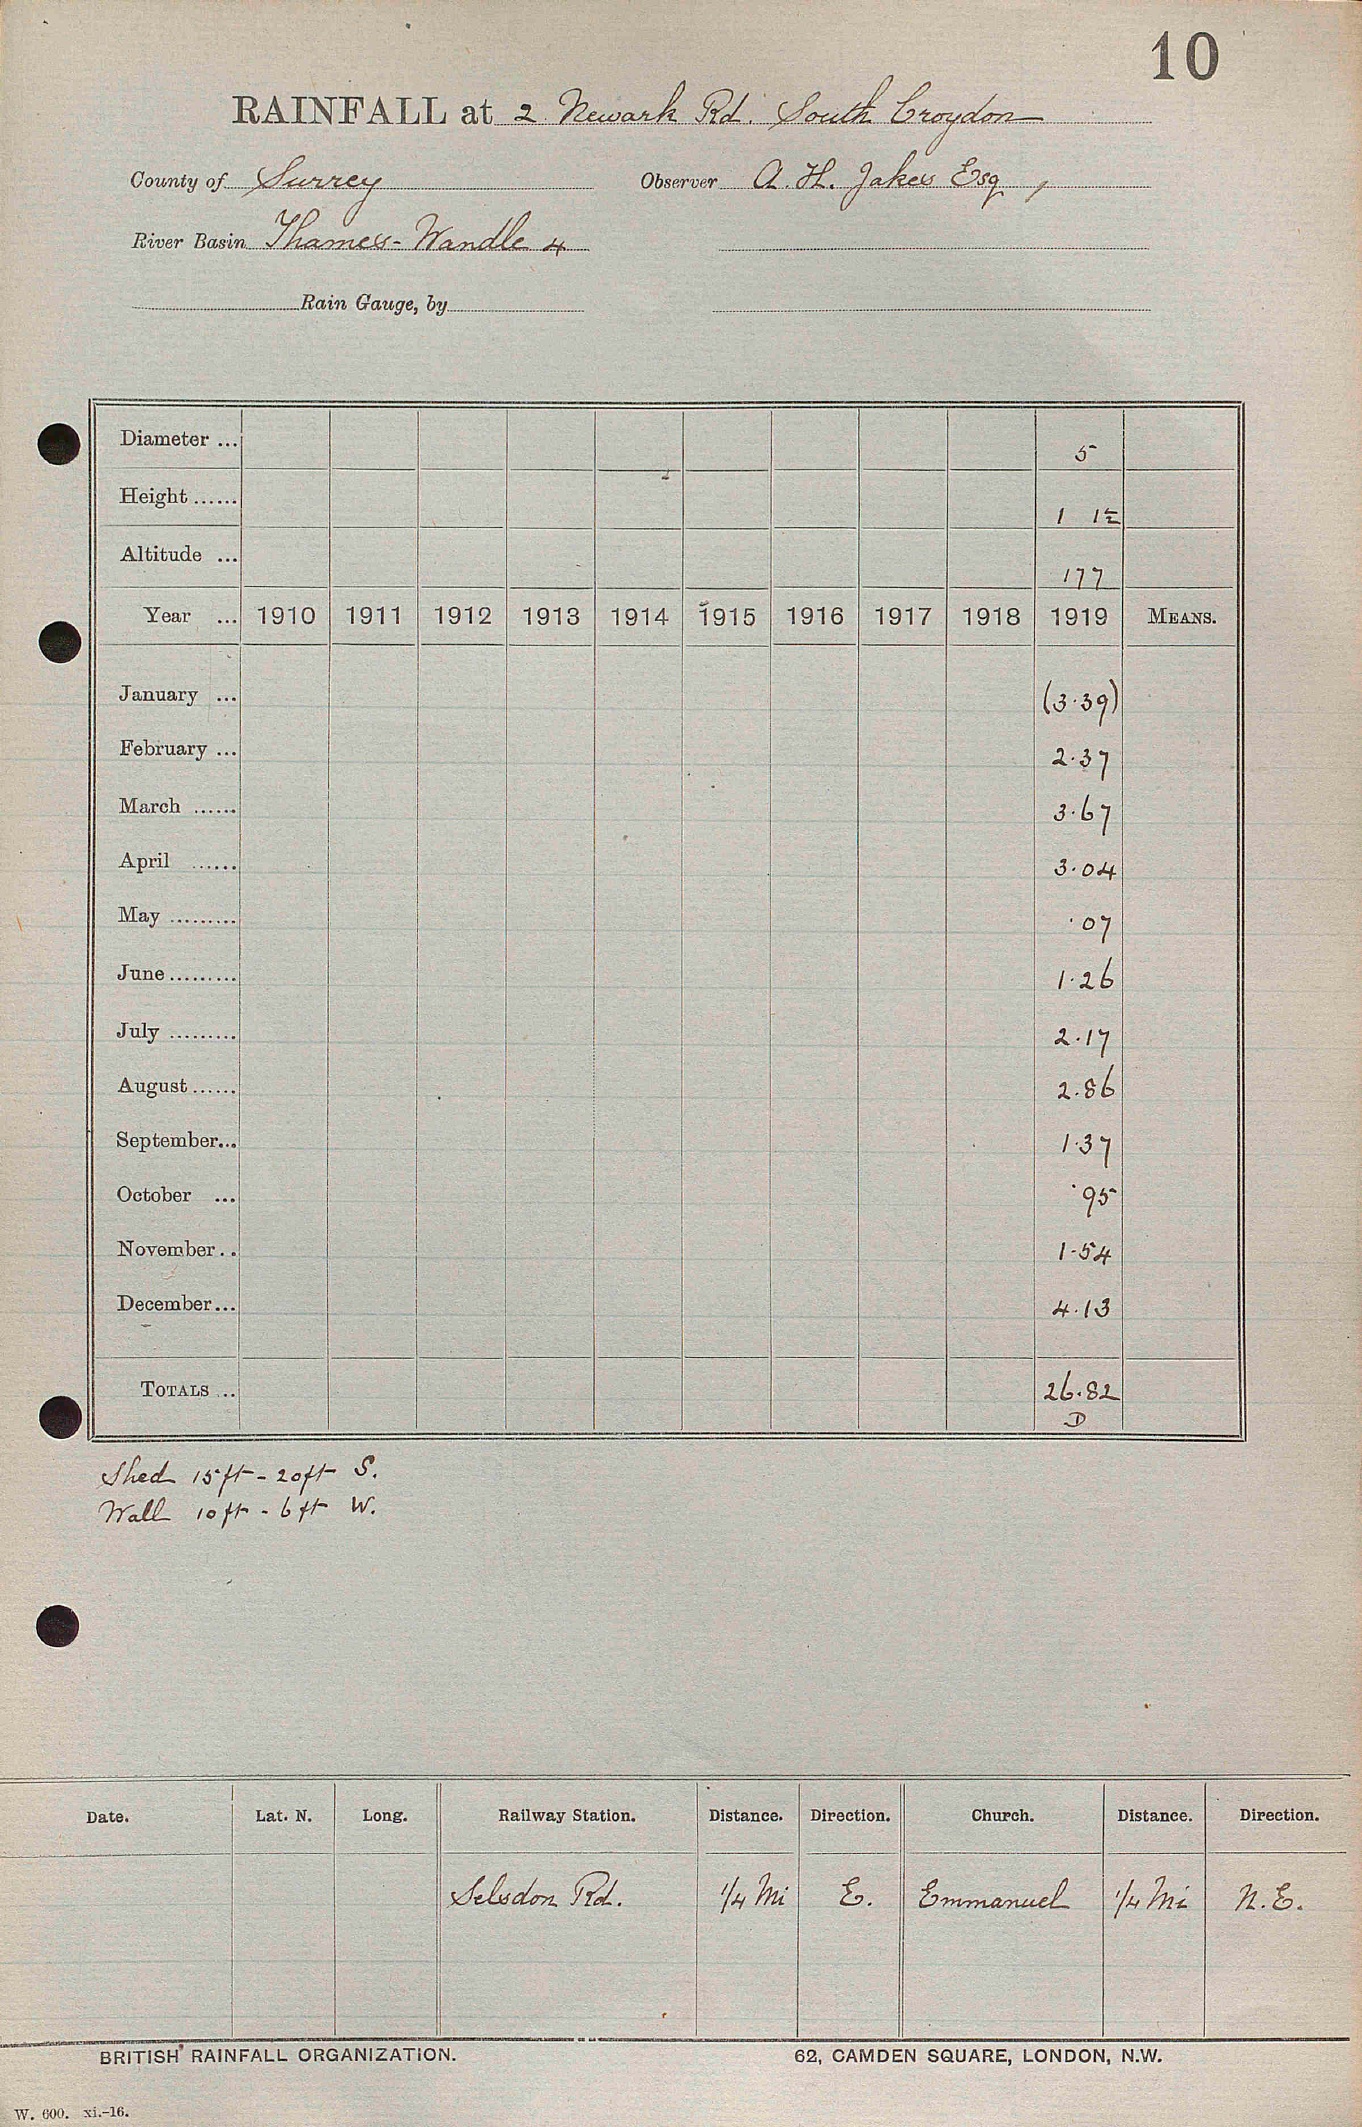 10
RAINFALL at 2 Newark Rd. South Croydon
County of Surrey Observer A. H. Jakes Esq,
River Basin Thames-Wandle 4
Rain Gauge, by
Diameter ... 5
Height ...... 1 1½
Altitude ... 177
Year ... 1910 1911 1912 1913 1914 1915 1916 1917 1918 1919 MEANS.
January ... (3.39)
February ... 2.37
March ...... 3.67
April ...... 3.04
May ......... .07
June ......... 1.26
July ......... 2.17
August ...... 2.86
September... 1.37
October ... .95
November .. 1.54
December... 4.13
TOTALS ... 26.82
D
Shed 15ft - 20ft S.
Wall 10ft - 6ft W.
Date. Lat. N. Long. Railway Station. Distance. Direction. Church. Distance. Direction.
Selsdon Rd. 1/4 Mi E. Emmanuel 1/4 Mi N.E.
BRITISH RAINFALL ORGANIZATION. 62, CAMDEN SQUARE, LONDON, N.W.
W. 600. xi.-16.